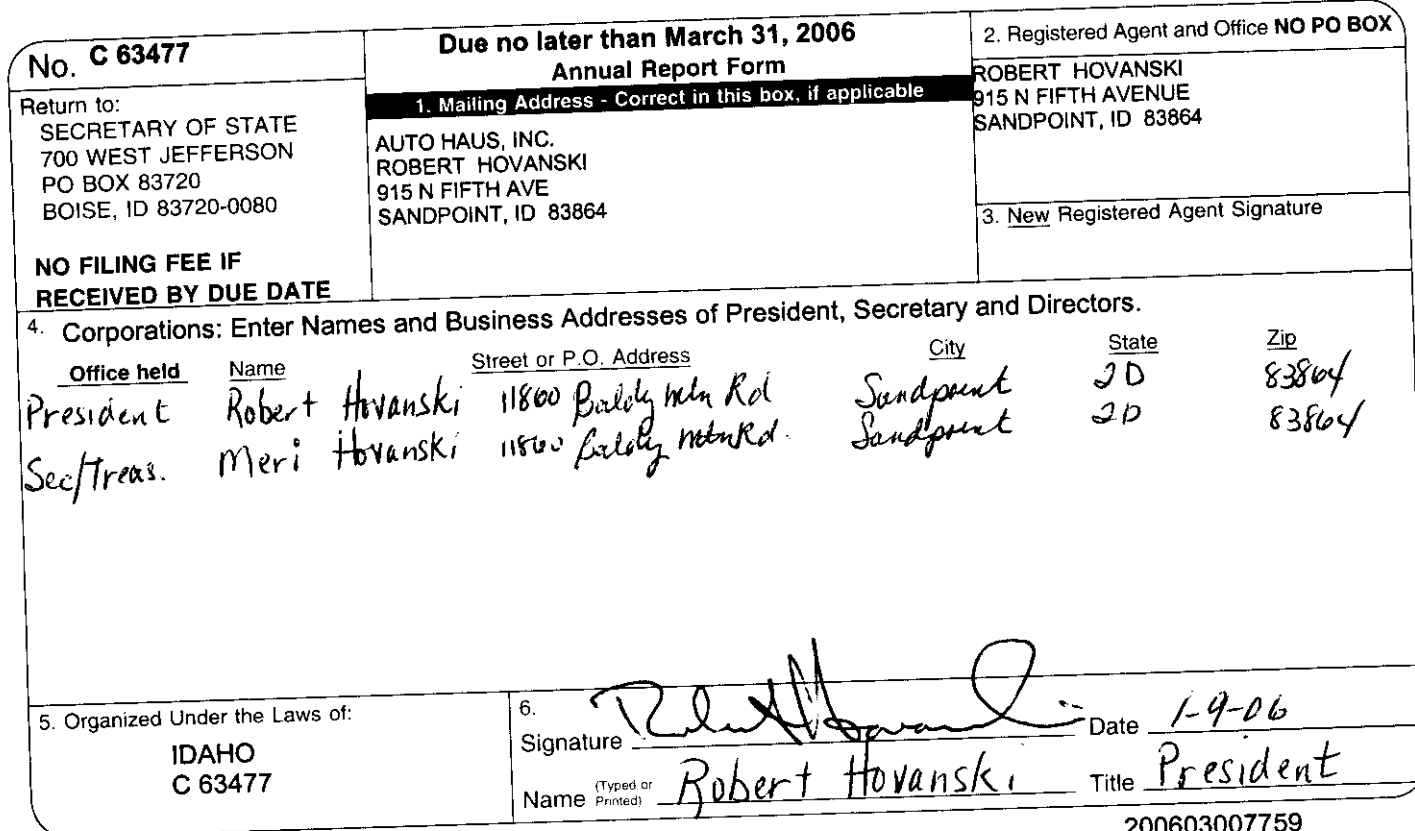 No. C 63477
Return to:
SECRETARY OF STATE
700 WEST JEFFERSON
PO BOX 83720
BOISE, ID 83720-0080
NO FILING FEE IF
RECEIVED BY DUE DATE
Due no later than March 31, 2006
Annual Report Form
1. Mailing Address - Correct in this box, if applicable
AUTO HAUS, INC.
ROBERT HOVANSKI
915 N FIFTH AVE
SANDPOINT, ID 83864
2. Registered Agent and Office NO PO BOX
ROBERT HOVANSKI
915 N FIFTH AVENUE
SANDPOINT, ID 83864
3. New Registered Agent Signature
4. Corporations: Enter Names and Business Addresses of President, Secretary and Directors.
Office held Name Street or P.O. Address City State Zip
President Robert Hovanski 11860 Baldy Mtn Rd Sandpoint ID 83864
Sec/Treas. Meri Hovanski 11860 Baldy Mtn Rd. Sandpoint ID 83864
5. Organized Under the Laws of:
IDAHO
C 63477
6.
Signature Robert Hovanski Date 1-9-06
Name (Typed or Printed) Robert Hovanski Title President
200603007759